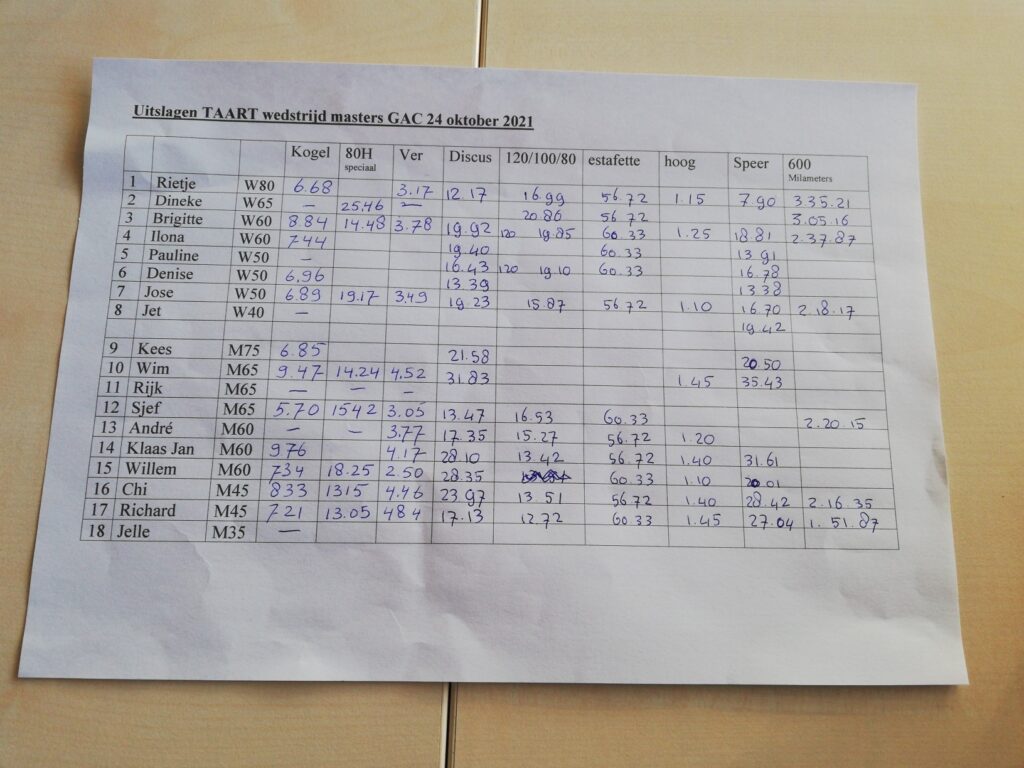 Uitslagen TAART wedstrijd masters GAC 24 oktober 2021
Kogel 80H speciaal Ver Discus 120/100/80 estafette hoog Speer 600 Milameters
1 Rietje W80 6.68 3.17 12.17 16.99 56.72 1.15 7.90 3.35.21
2 Dineke W65 — 25,46 — 20.86 56.72 3.05.16
3 Brigitte W60 8.84 14.48 3.78 19.92 120 19.85 60.33 1.25 18.81 2.37.87
4 Ilona W60 7.44 19.40 60.33 13.91
5 Pauline W50 — 16.43 120 19.10 60.33 16.78
6 Denise W50 6,96 13.39 13.38
7 Jose W50 6.89 19.17 3.49 19.23 15.87 56.72 1.10 16.70 2.18.17
8 Jet W40 — 19.42
9 Kees M75 6.85 21.58 20.50
10 Wim M65 9.47 14.24 4.52 31.83 1.45 35.43
11 Rijk M65 — — —
12 Sjef M65 5.70 1542 3.05 13.47 16.53 60.33 2.20.15
13 André M60 — — 3.77 17.35 15.27 56.72 1.20
14 Klaas Jan M60 976 4.17 28.10 13.42 56.72 1.40 31.61
15 Willem M60 734 18.25 2.50 28.35 60.33 1.10 20.01
16 Chi M45 833 1315 4.46 23.97 13.51 56.72 1.40 28.42 2.16.35
17 Richard M45 721 13.05 484 17.13 12.72 60.33 1.45 27.04 1.51.87
18 Jelle M35 —